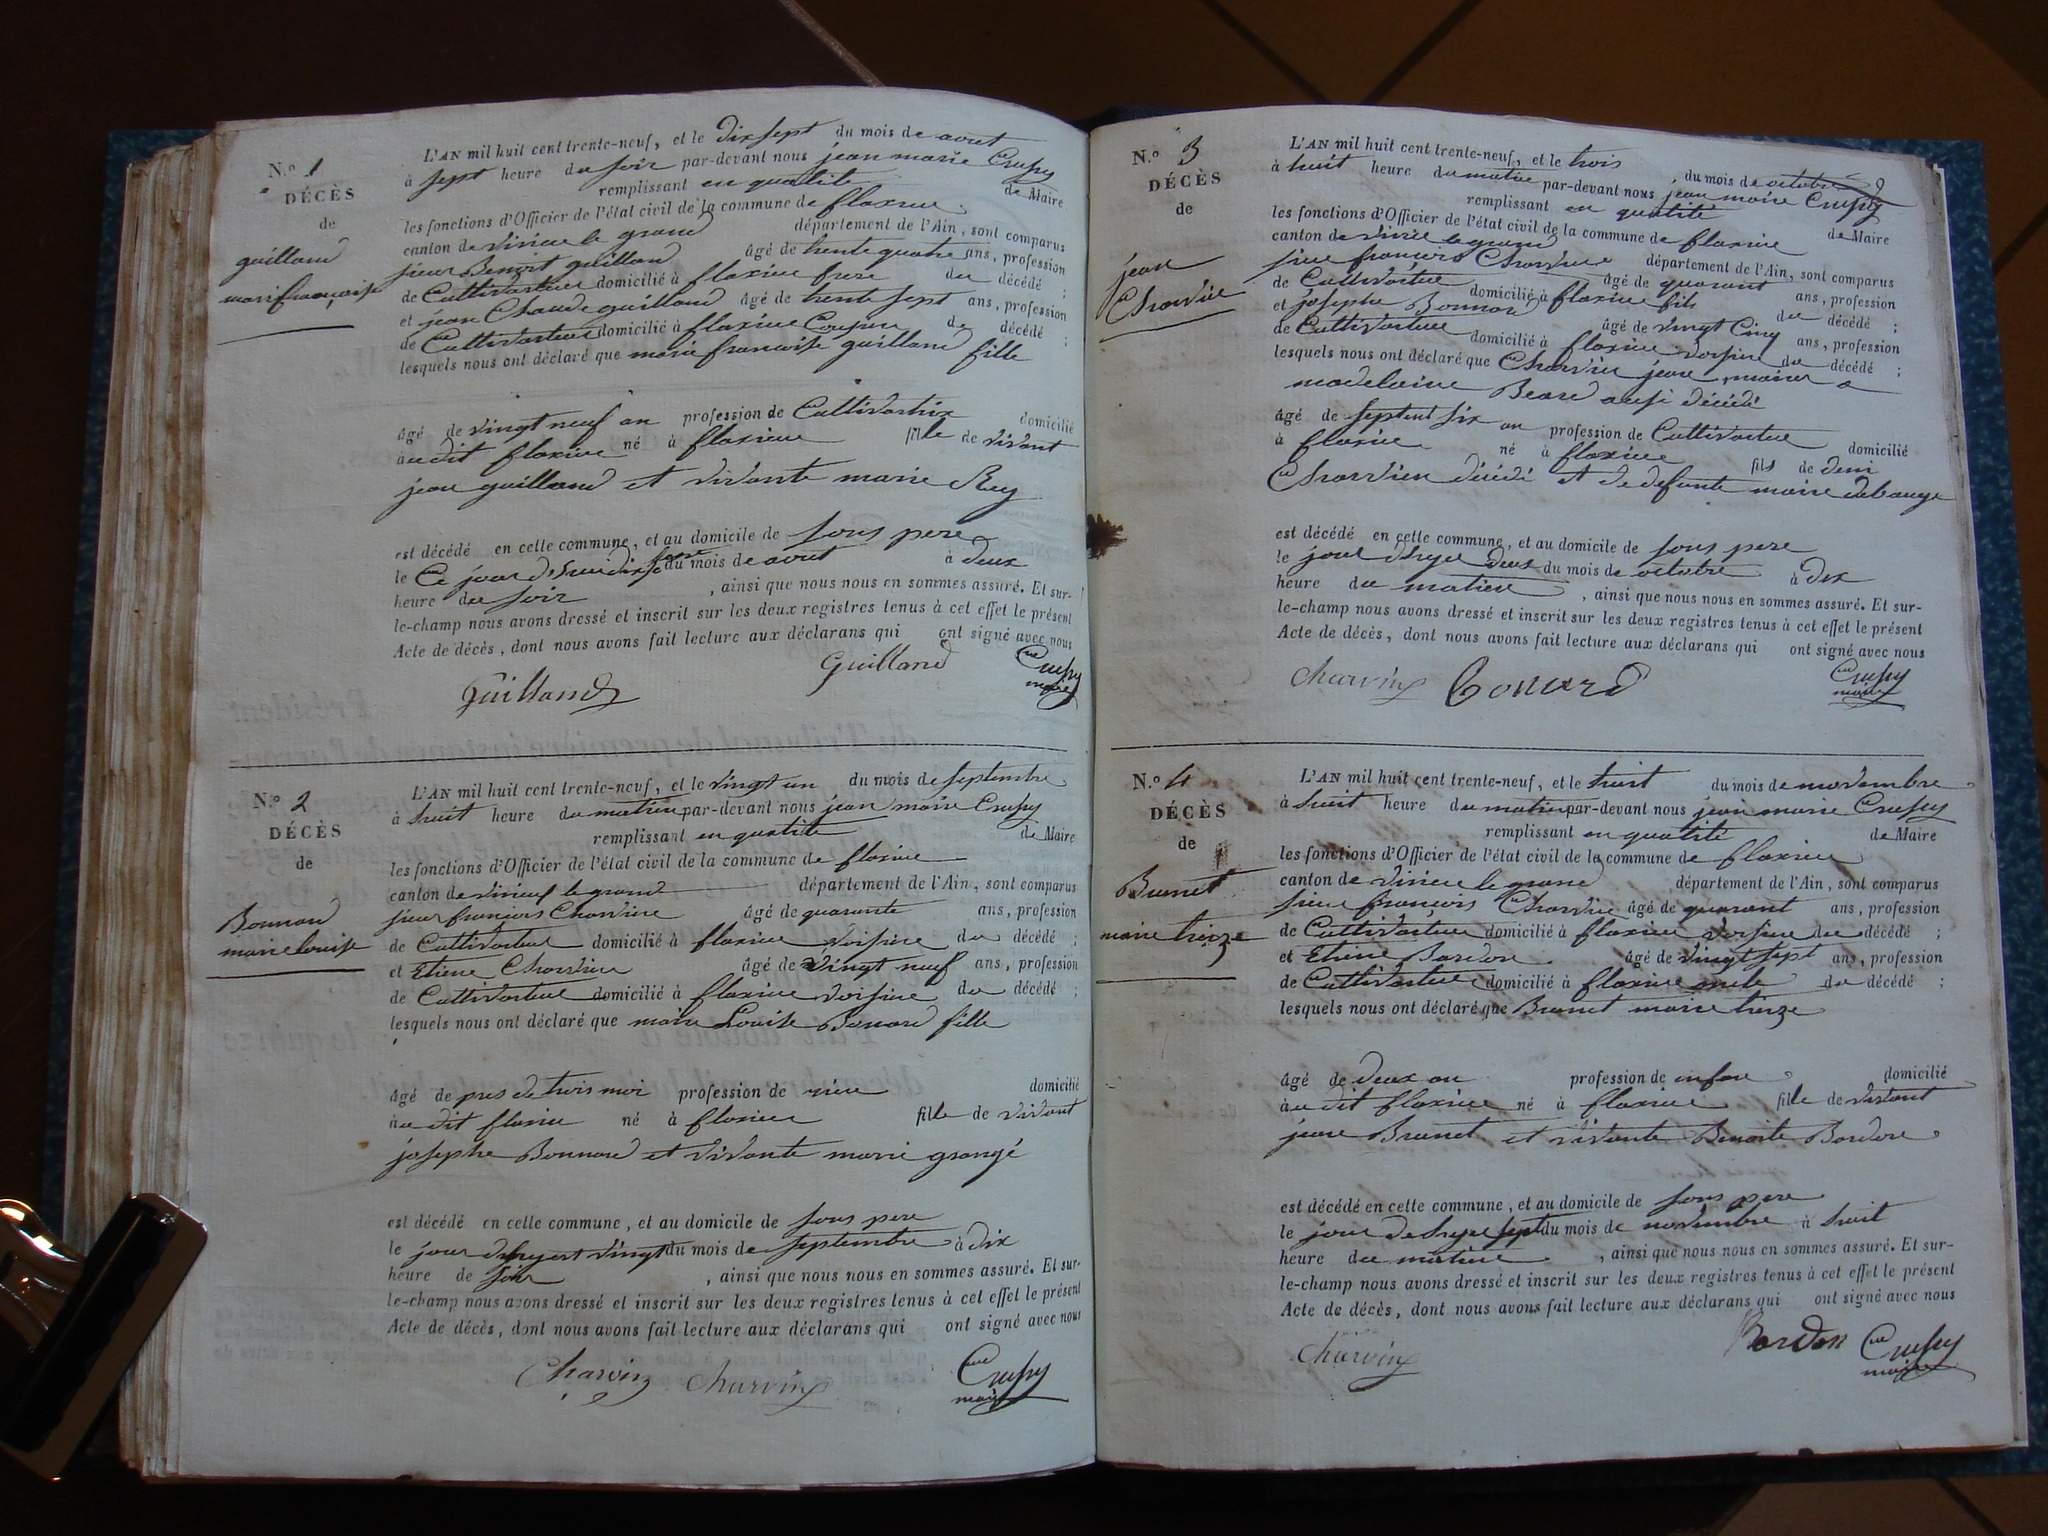 N.o 1
DÉCÈS
de
guilland
marifrançoise
L'AN mil huit cent trente-neuf, et le dix sept du mois de aout
à sept heure du soir par-devant nous jean marie Crussy
remplissant en qualité de Maire
les fonctions d'Officier de l'état civil de la commune de flaxieu
canton de virieu le grand département de l'Ain, sont comparus
sieur Benoit guilland âgé de trente quatre ans, profession
de Cultivateur domicilié à flaxieu frere du décédé ;
et jean Claude guilland âgé de trente sept ans, profession
de Cultivateur domicilié à flaxieu Cousin du décédé ;
lesquels nous ont déclaré que marie françoise guilland fille
âgé de vingt neuf an profession de Cultivatrix domicilié
audit flaxieu né à flaxieu fille de vivant
jean guilland et vivante marie Rey
est décédé en cette commune, et au domicile de sous pere
le Ce jour du mois de aout à deux
heure du soir , ainsi que nous nous en sommes assuré. Et sur-
le-champ nous avons dressé et inscrit sur les deux registres tenus à cet effet le présent
Acte de décès, dont nous avons fait lecture aux déclarans qui ont signé avec nous
Guilland Guilland Crussy
maire
N.o 2
DÉCÈS
de
Bonnard
marie louise
L'AN mil huit cent trente-neuf, et le vingt un du mois de septembre
à huit heure du matin par-devant nous jean marie Crussy
remplissant en qualité de Maire
les fonctions d'Officier de l'état civil de la commune de flaxieu
canton de virieu le grand département de l'Ain, sont comparus
sieur françois Charvin âgé de quarante ans, profession
de Cultivateur domicilié à flaxieu voisin du décédé ;
et Etiene Charvin âgé de vingt neuf ans, profession
de Cultivateur domicilié à flaxieu voisin du décédé ;
lesquels nous ont déclaré que marie Louise Bonard fille
âgé de pres de trois moi profession de rien domicilié
au dit flaxieu né à flaxieu fille de vivant
josephe Bonnard et vivante marie grangé
est décédé en cette commune, et au domicile de sous pere
le jour vingt du mois de septembre à dix
heure de soir , ainsi que nous nous en sommes assuré. Et sur-
le-champ nous avons dressé et inscrit sur les deux registres tenus à cet effet le présent
Acte de décès, dont nous avons fait lecture aux déclarans qui ont signé avec nous
Charvin Charvin Crussy
maire
N.o 3
DÉCÈS
de
jean
Charvin
L'AN mil huit cent trente-neuf, et le trois du mois de octobre
à huit heure du matin par-devant nous jean marie Crussy
remplissant en qualité de Maire
les fonctions d'Officier de l'état civil de la commune de flaxieu
canton de virieu le grand département de l'Ain, sont comparus
sieur françois Charvin âgé de quarant ans, profession
de Cultivateur domicilié à flaxieu fils du décédé ;
et josephe Bonnard âgé de vingt Cinq ans, profession
de Cultivateur domicilié à flaxieu voisin du décédé ;
lesquels nous ont déclaré que Charvin jean, marier a
madelaine Beard ausi décédé
âgé de septent six an profession de Cultivateur domicilié
à flaxieu né à flaxieu fils de deni
Charvin décédé et de defunte marie debauge
est décédé en cette commune, et au domicile de sous pere
le jour dhyer deux du mois de octobre à dix
heure du matin , ainsi que nous nous en sommes assuré. Et sur-
le-champ nous avons dressé et inscrit sur les deux registres tenus à cet effet le présent
Acte de décès, dont nous avons fait lecture aux déclarans qui ont signé avec nous
Charvin Bonard Crussy
maire
N.o 4
DÉCÈS
de
Brunet
marie
L'AN mil huit cent trente-neuf, et le huit du mois de novembre
à huit heure du matin par-devant nous jean marie Crussy
remplissant en qualité de Maire
les fonctions d'Officier de l'état civil de la commune de flaxieu
canton de virieu le grand département de l'Ain, sont comparus
sieur françois Charvin âgé de quarant ans, profession
de Cultivateur domicilié à flaxieu voisin du décédé ;
et Etiene Bardon âgé de vingt sept ans, profession
de Cultivateur domicilié à flaxieu oncle du décédé ;
lesquels nous ont déclaré que Brunet marie
âgé de deux an profession de enfan domicilié
au dit flaxieu né à flaxieu fille de vivant
jean Brunet et vivante Benoite Bardon
est décédé en cette commune, et au domicile de sous pere
le jour de hyer sept du mois de novembre à huit
heure du matin , ainsi que nous nous en sommes assuré. Et sur-
le-champ nous avons dressé et inscrit sur les deux registres tenus à cet effet le présent
Acte de décès, dont nous avons fait lecture aux déclarans qui ont signé avec nous
Charvin Bardon Crussy
maire